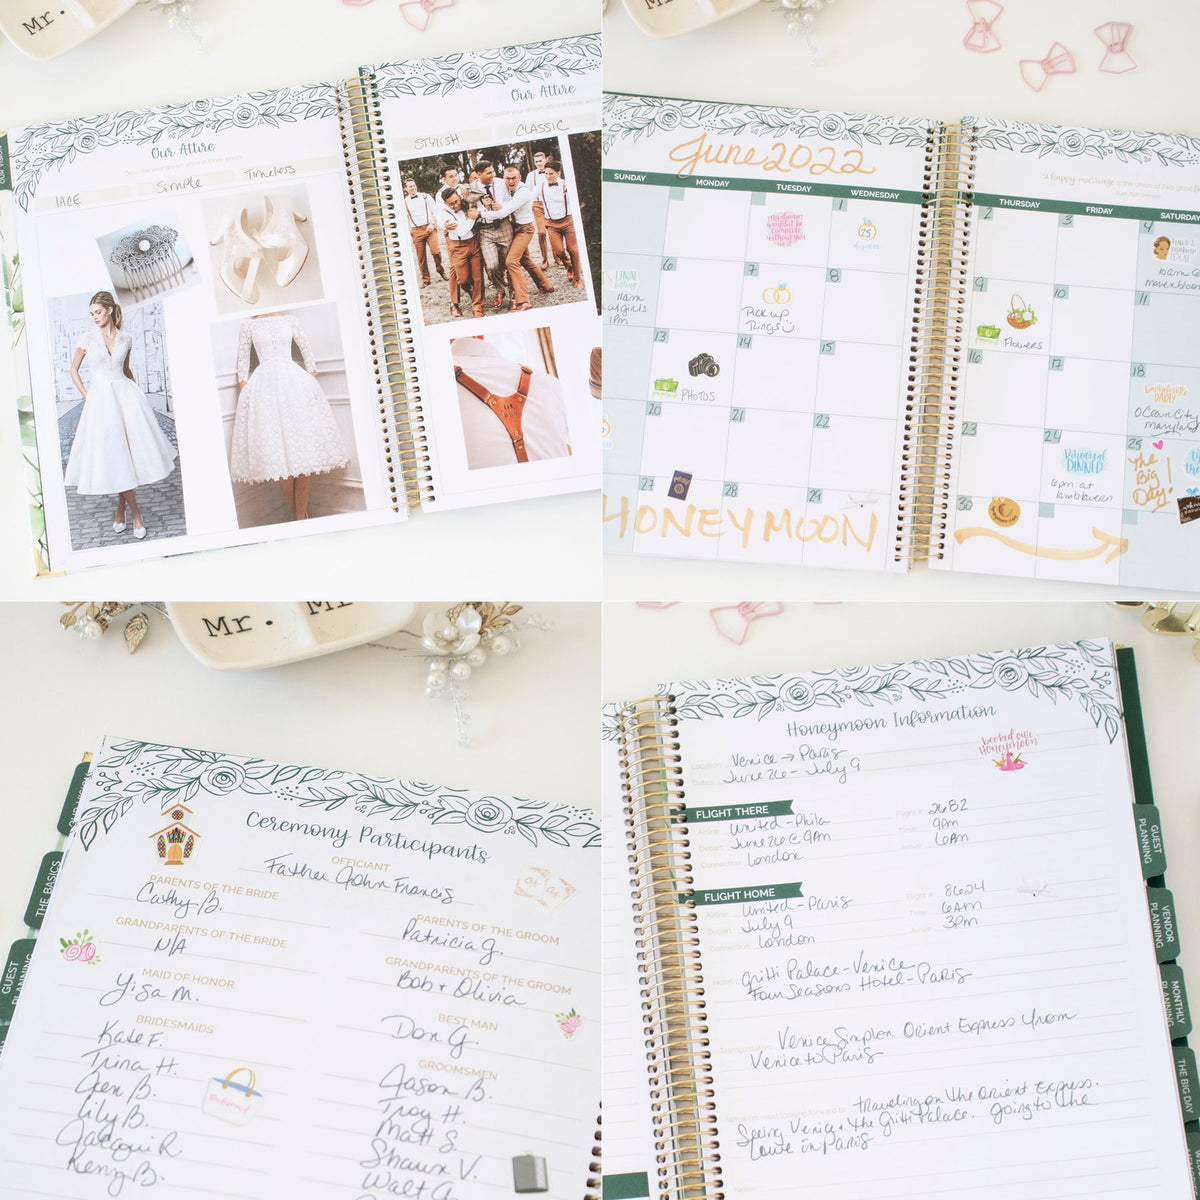 Mr.
OUR VISION
Our Attire
Describe your dream attire in three words
lace
Simple
Timeless
Our Attire
Describe your dream attire in three words
STYLISH
CLASSIC
June 2022
a happy marriage is the union of two good
SUNDAY
MONDAY
TUESDAY
WEDNESDAY
THURSDAY
FRIDAY
SATURDAY
1
25
2
3
4
hair & makeup trial
10am @
mavenbloom
6
7
8
9
10
11
FINAL fitting
11am
w/girls
1pm
Pick up
Rings
Flowers
13
14
15
16
17
18
PHOTOS
bachelorette PARTY
Ocean City
Maryland
20
21
22
23
24
25
Rehearsal DINNER
6pm at
The
Big
Day!
27
28
29
30
HONEYMOON
Mr.
THE BASICS
GUEST PLANNING
Ceremony Participants
OFFICIANT
Father John Francis
PARENTS OF THE BRIDE
Cathy B.
PARENTS OF THE GROOM
Patricia G.
GRANDPARENTS OF THE BRIDE
N/A
GRANDPARENTS OF THE GROOM
Bob + Olivia
MAID OF HONOR
BEST MAN
Don G.
BRIDESMAIDS
Kate F.
Trina H.
Jen B.
Lily B.
Jacqui R.
Kenzy B.
GROOMSMEN
Jason B.
Troy H.
Matt S.
Shawn V.
Walt G.
Honeymoon Information
booked our honeymoon
Location: Venice → Paris
Dates: June 26 - July 9
FLIGHT THERE
Airline: United - Phila
Flight #: 2682
Depart: June 26 @ 9pm
Time: 9pm
Connection: London
Arrive: 6am
FLIGHT HOME
Airline: United - Paris
Flight #: 8624
Depart: July 9
Time: 6am
Connection: London
Arrive: 3pm
Hotel: Gritti Palace - Venice
Four Seasons Hotel - Paris
Transportation: Venice Simplon Orient Express from
Venice to Paris
traveling on the Orient Express.
Seeing Venice + the Gritti Palace. going to the
Louve in Paris
Notes:
GUEST PLANNING
VENDOR PLANNING
MONTHLY PLANNING
THE BIG DAY